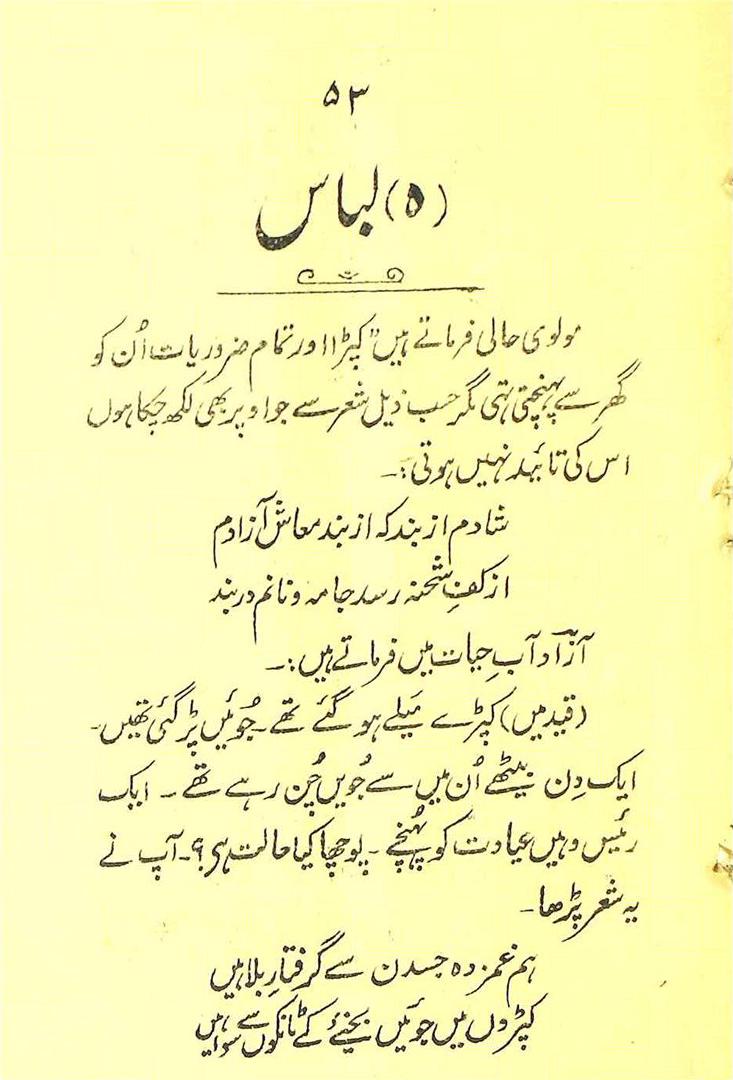 ۵۳
(۵) لباس
مولوی حالی فرماتے ہیں "کپڑا اور تمام ضروریات اُن کو
گھر سے پہنچتی تہی مگر حسب ذیل شعر سے جو اوپر بھی لکھ چکا ہوں
اس کی تائید نہیں ہوتی:۔
شادم از بند کہ از بند معاش آزادم
از کفِ شحنہ رسد جامہ و نانم در بند
آزاد آبِ حیات میں فرماتے ہیں:۔
(قید میں) کپڑے مَیلے ہو گئے تھے۔ جُوئیں پڑ گئی تھیں۔
ایک دِن بیٹھے اُن میں سے جُویں چُن رہے تھے۔ ایک
رئیس وہیں عیادت کو پُہنچے۔ پوچھا کیا حالت ہی؟۔ آپ نے
یہ شعر پڑھا۔
ہم غمزدہ جس دن سے گرفتارِ بلا ہیں
کپڑوں میں جوئیں بخیئے کے ٹانکوں سے سوا ہیں